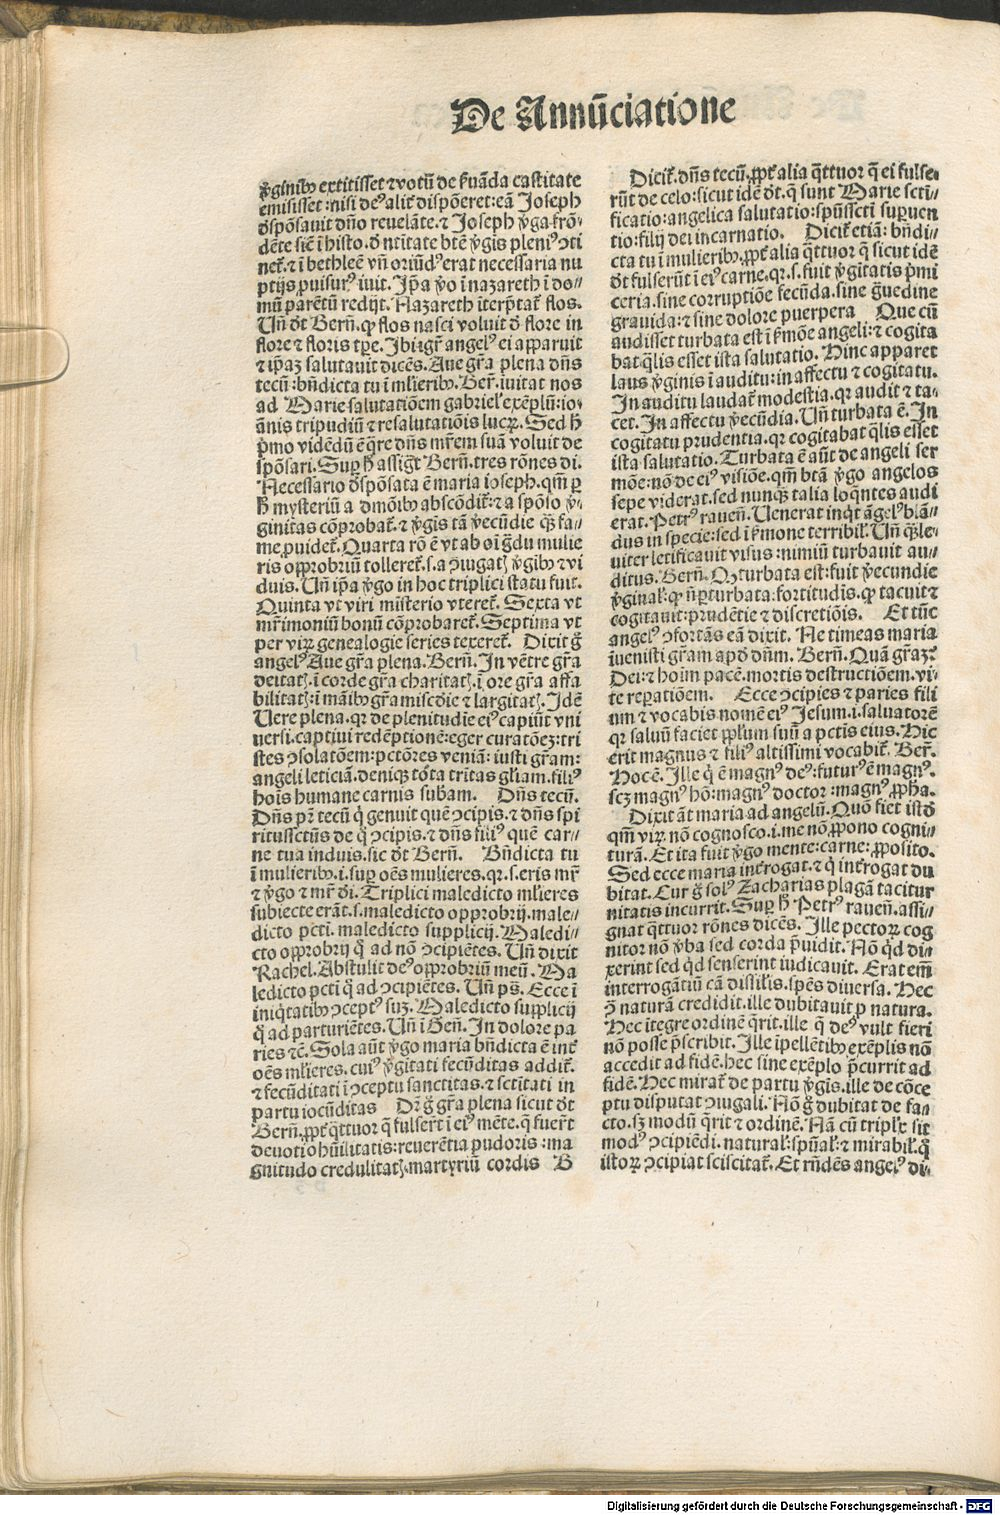 De Annūciatione
v̄ginibꝰ extitisset ⁊ votū de s̄uāda castitate
emisisset : nisi deꝰ aliṫ dispōeret : eā Joseph
d̄sponsavit dn̄o revelāte. ⁊ Joseph v̄ga frō⸗
dēte siē ī histo. d̄ nītate btē v̄gis pleniꝰ ↄti
neṫ. ⁊ ī bethleē vn̄ oriūdꝰ erat necessaria nu
ptijs ꝓuisurꝰ iuit. Ip̄a v̄o ī nazareth ī do⸗
mū parētū redijt. Nazareth īterp̄taṫ flos.
Un̄ d̄t Bern̄. ꝙ flos nasci voluit d̄ flore in
flore ⁊ floris tp̄e. Ibi igr̄ angelꝰ ei apparuit
⁊ ip̄aꝫ salutauit dicēs. Aue gr̄a plena dn̄s
tecū : bn̄dicta tu ī ml̄ieribꝰ. Ber̄. īuitat nos
ad Marie salutatiōem gabriel' exēplū : io⸗
ānis tripudiū ⁊ resalutatiōis lucꝝ. Sed h̄
p̄mo vidēdū ē q̄re dn̄s mr̄em suā voluit de
spōsari. Suꝑ h̄ assigt̄ Bern̄. tres rōnes di.
Necessario d̄sponsata ē maria ioseph. qm̄ ꝑ
h̄ mysteriū a dmōibꝰ abscōdiṫ : ⁊ a spōso v̄⸗
ginitas cōprobaṫ. ⁊ v̄gis tā v̄ecūdie qꝫ fa⸗
me ꝓuideṫ. Quarta rō ē vt ab oī ḡdu mulie
ris opprobriū tollereṫ. s. a ↄiugatꝭ v̄gibꝰ ⁊ vi
duis. Un̄ ip̄a v̄go in hoc triplici statu fuit.
Quinta vt viri mīsterio vtereṫ. Sexta vt
mr̄imoniū bonū cōprobareṫ. Septima vt
per viꝝ genealogie series texereṫ. Dixit g̊
angelꝰ Aue gr̄a plena. Bern̄. In vētre gr̄a
deitatꝭ. ī corde gr̄a charitatꝭ. ī ore gr̄a affa
bilitatꝭ : ī māibꝰ gr̄a miscdie ⁊ largitatꝭ. Idē
Uere plena. qꝛ de plenitudīe eiꝰ capiūt vni
uersi. captiui redēptionē : eger curatōeꝫ : tri
stes ↄsolatōem : pctōres veniā : iusti gr̄am :
angeli leticiā. deniqꝫ tōta tr̄itas gl̄iam. filiꝰ
hoīs humane carnis subam. Dn̄s tecū.
Dn̄s pr̄ tecū q̇ genuit quē ↄcipis. ⁊ dn̄s spi
ritussctūs de q̊ ↄcipis. ⁊ dn̄s filiꝰ quē car⸗
ne tua induis. sic d̄t Bern̄. Bn̄dicta tu
ī mulieribꝰ. i. suꝑ oēs mulieres. qꝛ. s. eris mr̄
⁊ v̄go ⁊ mr̄ d̄i. Triplici maledicto ml̄ieres
subiecte erāt. s. maledicto opprobrij. male⸗
dicto pcti. maledicto supplicij. Maledi⸗
cto opprobrij q̊ ad nō ↄcipiētes. Un̄ dixit
Rachel. Abstulit deꝰ opprobriū meū. Ma
ledicto pcti q̊ ad ↄcipiētes. Un̄ ps̄. Ecce ī
iniq̇tatibꝰ ↄceptꝰ suꝫ. Maledicto supplicij
q̊ ad parturiētes. Un̄ ī Gen̄. In dolore pa
ries ⁊c̄. Sola aūt v̄go maria bn̄dicta ē inṫ
oēs ml̄ieres. cuiꝰ v̄gītati fecūditas addiṫ.
⁊ fecūditati ī ↄceptu sanctitas. ⁊ sctītati in
partu iocūditas Dr̄ g̊ gr̄a plena sicut d̄t
Bern̄. ꝓpṫ qttuor q̄ fulserṫ ī eiꝰ mēte. q̄ fuerṫ
deuotio hūilitatis : reuerētia pudoris : ma
gnitudo credulitatꝭ. martyriū cordis B
Diciṫ. dn̄s tecū. ꝓpṫ alia q̄ttuor q̄ ei fulse⸗
rūt de celo : sicut idē d̄t. q̄ sunt Marie sctī⸗
ficatio : angelica salutatio : spūssctī supuen
tio : filij dei incarnatio. Diciṫ etiā : bn̄di⸗
cta tu ī mulieribꝰ. ꝓpṫ alia q̄ttuor q̄ sicut idē
d̄t fulserūt ī eiꝰ carne. qꝛ. s. fuit v̄gītatis p̄mi
ceria. sine corruptiōe fecūda. sine g̊uedine
grauida : ⁊ sine dolore puerpera Que cū
audisset turbata est ī s̄mōe angeli : ⁊ cogita
bat q̄lis esset ista salutatio. Hinc apparet
laus v̄ginis ī auditu : in affectu ⁊ cogitatu.
In auditu laudaṫ modestia. qꝛ audit ⁊ ta⸗
cet. In affectu v̄ecūdia. Un̄ turbata ē. In
cogitatu prudentia. qꝛ cogitabat q̄lis esset
ista salutatio. Turbata ē aūt de angeli ser
mōe : nō de eiꝰ visiōe. qm̄ btā v̄go angelos
sepe viderat. sed nunqꝫ talia loq̄ntes audi
erat. Petrꝰ rauen̄. Uenerat inq̇t āgelꝰ blā⸗
dus in specie : sed ī s̄mone terribil'. Un̄ qꝫ le⸗
uiter letificauit visus : nimiū turbauit au⸗
ditus. Bern̄. Ꝙ turbata est : fuit v̄ecundie
v̄ginal' : ꝙ nō ꝑturbata : fortitudīs. ꝙ tacuit ⁊
cogitauit : prudētie ⁊ discretiōis. Et tūc
angelꝰ ↄfortās eā dixit. Ne timeas maria
īuenisti gr̄am apd̄ dn̄m. Bern̄. Quā gr̄aꝫ?
Dei : ⁊ hoīm pacē. mortis destructiōem. vi⸗
te reꝑatiōem. Ecce ↄcipies ⁊ paries fili
um ⁊ vocabis nomē eiꝰ Jesum. i. saluatorē
qꝛ saluū faciet ppl'um suū a pctīs eius. Hic
erit magnus ⁊ filiꝰ altissimi vocabiṫ. Ber̄.
Hoc ē. Ille q̇ ē magnꝰ deꝰ : futurꝰ ē magnꝰ.
scꝫ magnꝰ hō : magnꝰ doctor : magnꝰ ꝓpha.
Dixit āt maria ad angelū. Quō fiet istd̄
qm̄ viꝝ nō cognosco. i. me nō ꝓpono cogni⸗
turā. Et ita fuit v̄go mente : carne : ꝓposito.
Sed ecce maria inṫrogat. ⁊ q̇ inṫrogat du
bitat. Cur g̊ solꝰ Zacharias plagā tacitur
nitatis incurrit. Suꝑ h̄ Petrꝰ rauen̄. assi⸗
gnat q̄ttuor rōnes dicēs. Ille pectoꝝ cog
nitor nō v̄ba sed corda p̄uidit. Nō q̇d di⸗
xerint sed q̇d senserint iudicauit. Erat em̄
interrogātiū cā dissilis. spēs diuersa. Hec
ↄ̄ naturā credidit. ille dubitauit ꝓ natura.
Hec ītegre ordinē q̄rit. ille q̄ deꝰ vult fieri
nō posse p̄scribit. Ille īpellētibꝰ exēplis nō
accedit ad fidē. hec sine exēplo p̄currit ad
fidē. Hec miraṫ de partu v̄gīs. ille de cōce
ptu disputat ↄiugali. Nō g̊ dubitat de fa⸗
cto. sꝫ modū q̄rit ⁊ ordinē. Nā cū triplex sit
modꝰ ↄcipiēdi. natural' : spūal' : ⁊ mirabil'. q̊
istoꝝ ↄcipiat sciscitaṫ. Et rn̄dēs angelꝰ di⸗
Digitalisierung gefördert durch die Deutsche Forschungsgemeinschaft - DFG